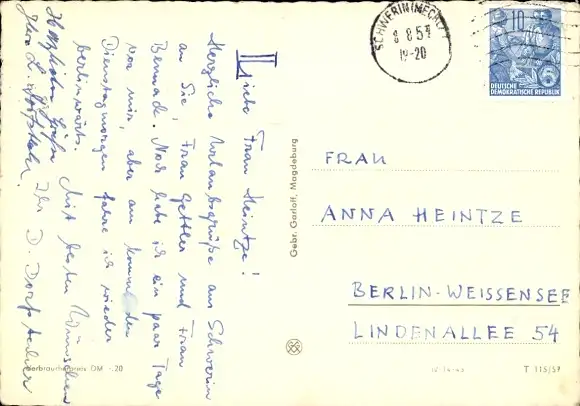 Liebe Frau Heintze!
Herzliche Urlaubsgrüße aus Schwerin
an Sie, Frau Gettler und Frau
Bernade. Noch habe ich ein paar Tage
vor mir, aber am kommenden
Dienstagmorgen fahre ich wieder
berlinwärts.
Mit besten Wünschen
Ihr D. Dorfacher
Herzliche Grüße
Ihre L.
Verbraucherpreis DM -.20
Gebr. Garloff, Magdeburg
SCHWERIN (MECKL)
8 8.59
19-20
10
DEUTSCHE
DEMOKRATISCHE REPUBLIK
FRAU
ANNA HEINTZE
BERLIN-WEISSENSEE
LINDENALLEE 54
T 115/59